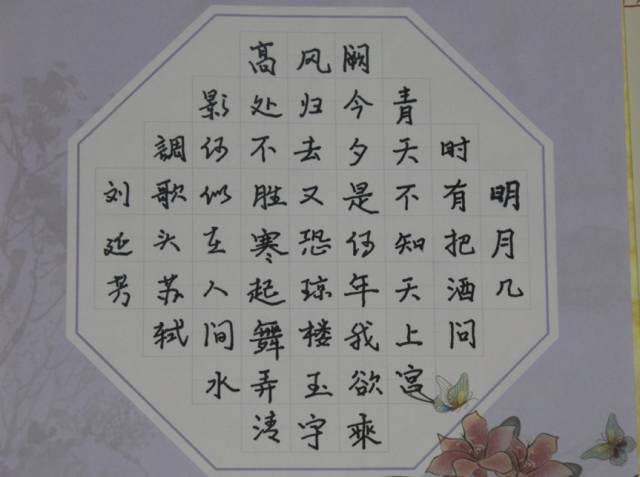 明月几
时有把酒问
青天不知天上宫
阙今夕是何年我欲乘
风归去又恐琼楼玉宇
高处不胜寒起舞弄清
影何似在人间水
調歌头苏轼
刘延芳